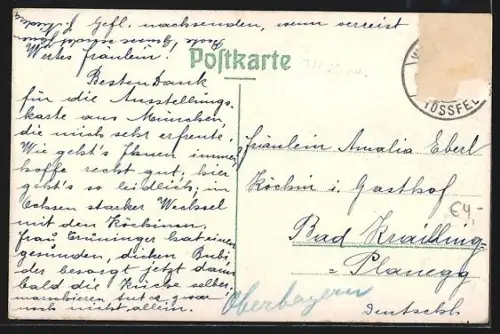 Gefl. nachsenden, wenn verreist
Beste Grüsse
Wertes Fräulein!
Postkarte
TÖSSFEL
Besten Dank
für die Ausstellungs-
karte aus München
die mich sehr erfreute.
Wie geht's Ihnen immer,
hoffe recht gut; hier
geht's so leidlich; im
Ochsen starker Wechsel
mit den Köchinnen,
Frau Grüninger hat einen
gesunden, dicken Bubi,
der besorgt jetzt dann
bald die Küche selber,
noch nicht allein.
Fräulein Amalia Eberl
Köchin i. Gasthof
Bad Krailling
= Planegg
Oberbayern
Deutschl.
64,-